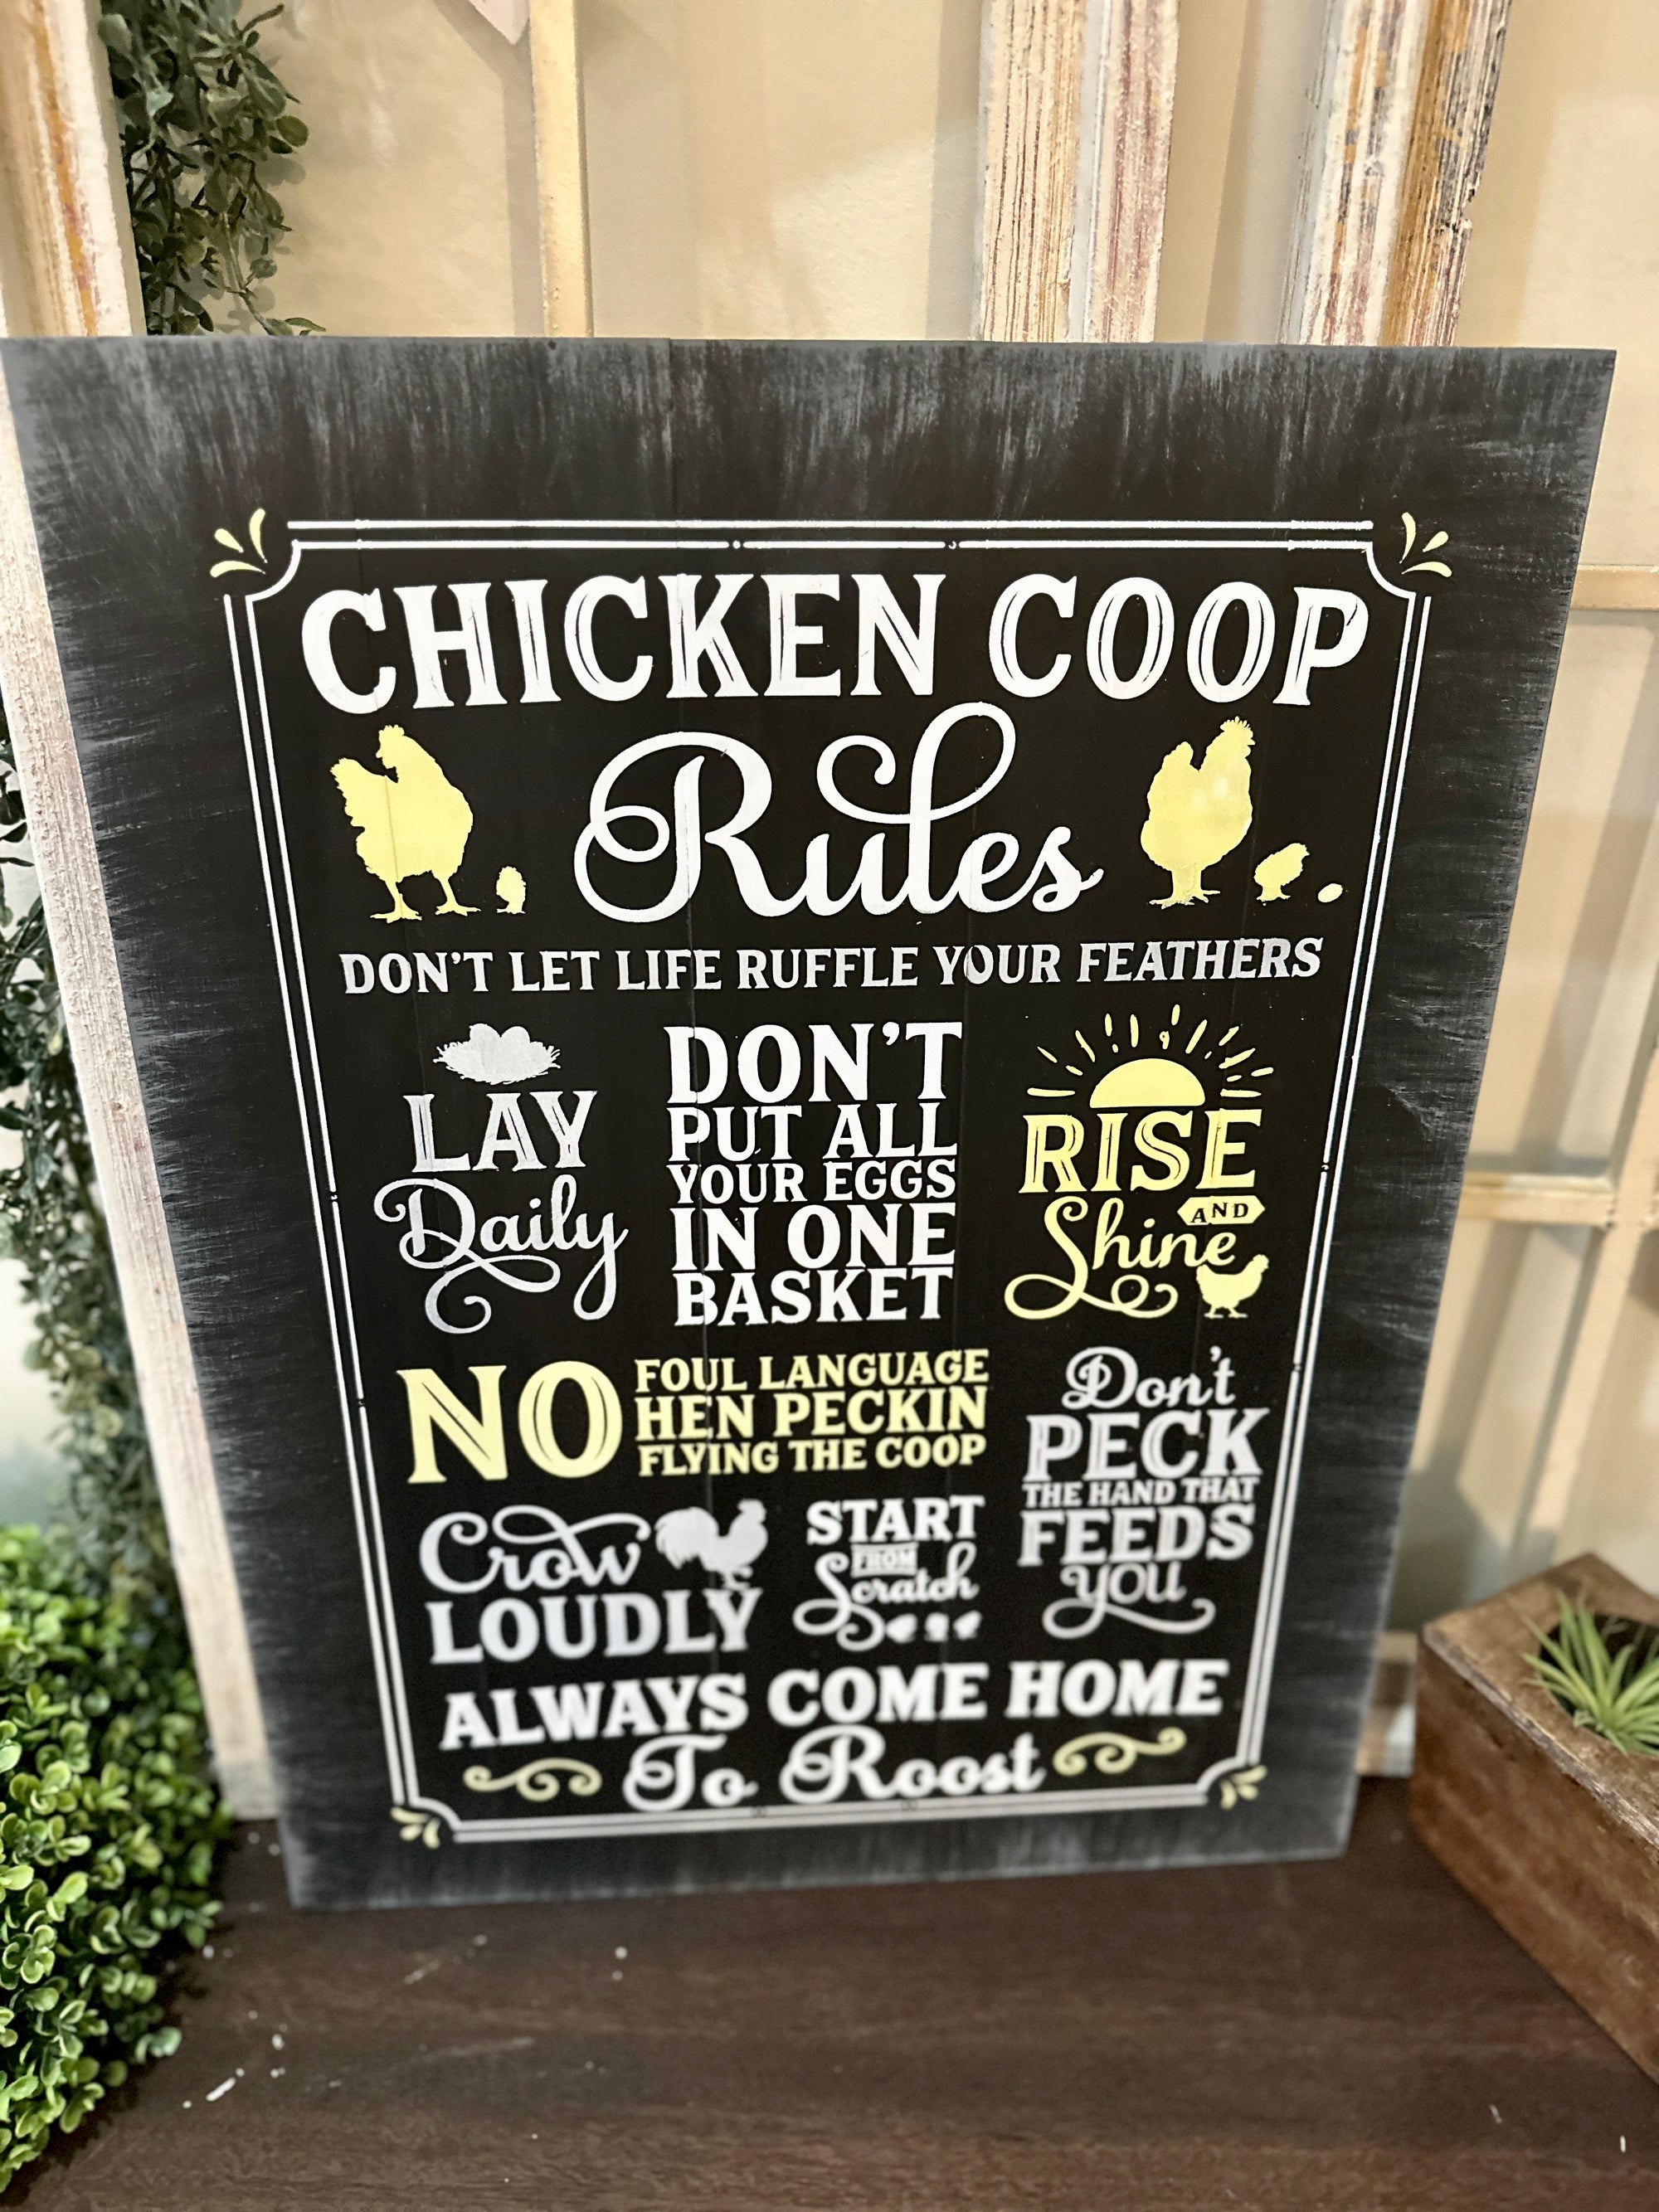 CHICKEN COOP
Rules
DON'T LET LIFE RUFFLE YOUR FEATHERS
LAY
Daily
DON'T
PUT ALL
YOUR EGGS
IN ONE
BASKET
RISE
AND
Shine
NO
FOUL LANGUAGE
HEN PECKIN
FLYING THE COOP
Don't
PECK
THE HAND THAT
FEEDS
you
Crow
LOUDLY
START
FROM
Scratch
ALWAYS COME HOME
To Roost